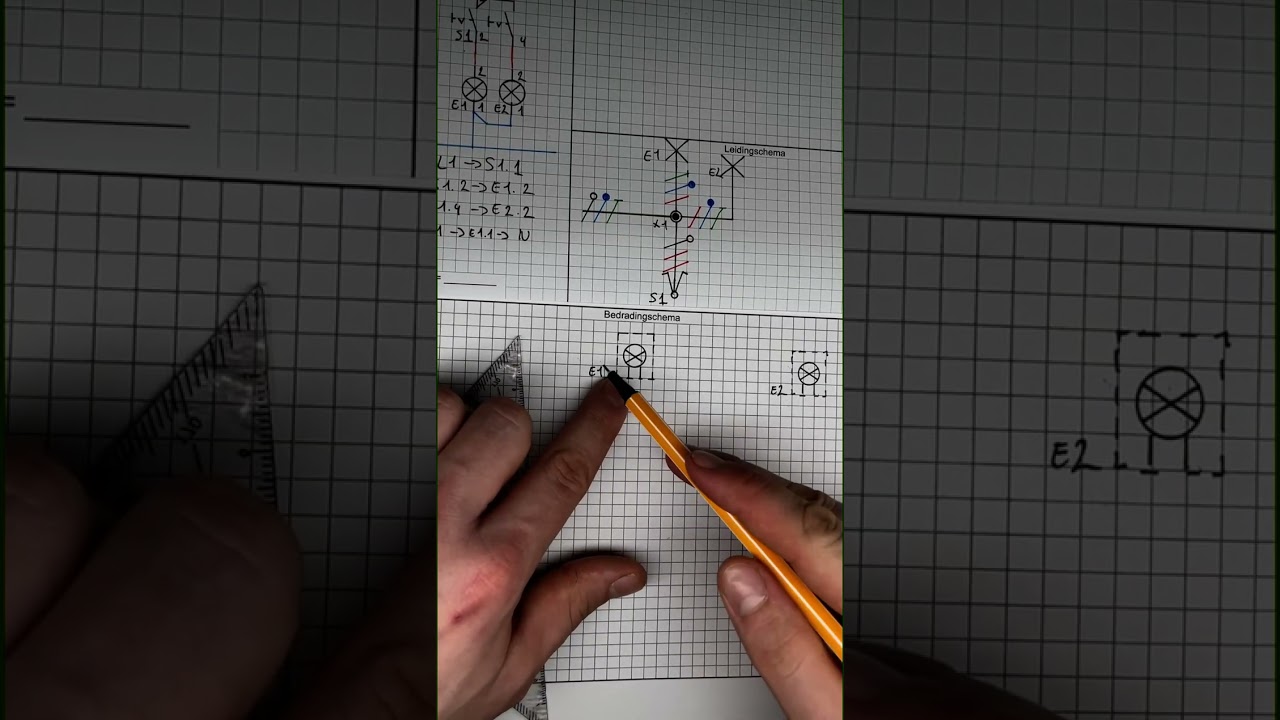 S1 2 4
2 2
E1 1 E2 1
L1 → S1.1
1.2 → E1.2
1.4 → E2.2
1 → E1.1 → N
=
Leidingschema
E1
E2
X1
S1
Bedradingschema
E1
E2
=
E2